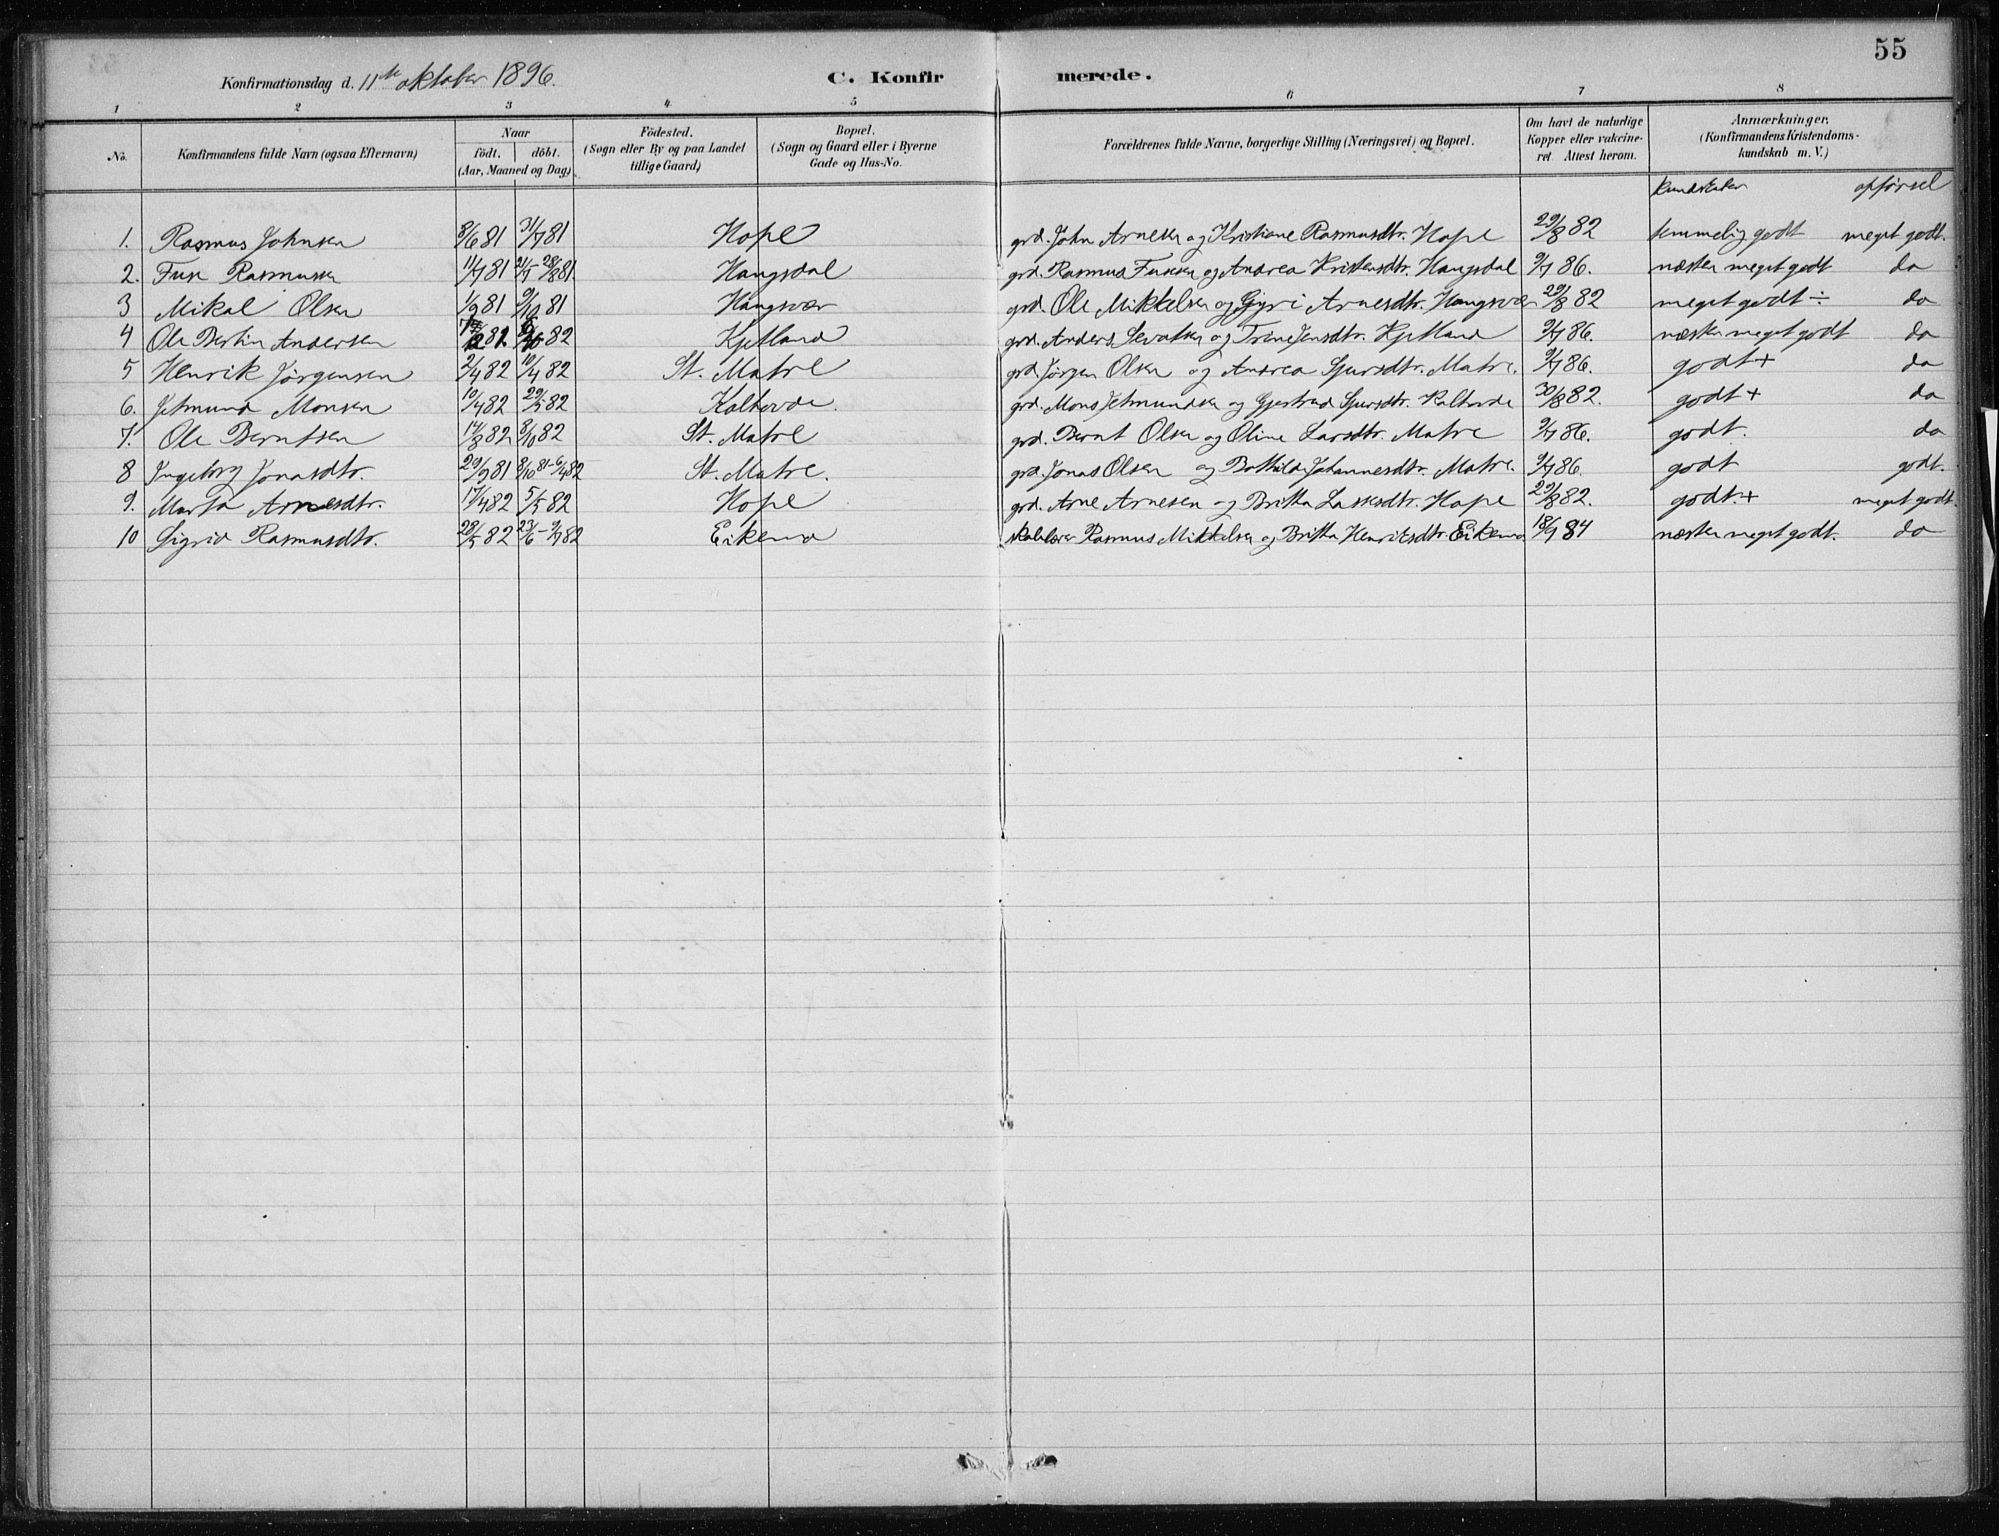 55
Konfirmationsdag d. 11te oktober 1896.
C. Konfirmerede.
1 2 3 4. 5 6 7 8
No. Konfirmandens fulde Navn (ogsaa Efternavn) Naar födt. döbt. (Aar, Maaned og Dag) Födested. (Sogn eller By og paa Landet tillige Gaard) Bopæl. (Sogn og Gaard eller i Byerne Gade og Hus-No. Forældrenes fulde Navne, borgerlige Stilling (Næringsvei) og Bopæl. Om havt de naturlige Kopper eller vakcineret. Attest herom. Anmærkninger. (Konfirmandens Kristendomskundskab m. V.)
kundskaber opførsel
1. Rasmus Johnsen 8/6 81 31/7 81 Hope grd. John Arnesen og Kristiane Rasmusdtr. Hope 29/8 82 temmelig godt meget godt.
2. Fuse Rasmussen 11/7 81 21/7 - 28/8 81 Haugsdal grd. Rasmus Fusesen og Andrea Kristensdtr. Haugsdal 9/7 86. næsten meget godt do
3 Mikal Olsen 1/9 81 9/10 81 Haugsvær grd. Ole Mikkelsen og Gyri Arnesdtr. Haugsvær 29/8 82 meget godt ÷ do
4 Ole Bertin Andersen 82 Kjetland grd. Anders Sevatsen og Trine Jensdtr. Kjetland 9/7 86. næsten meget godt do
5 Henrik Jørgensen 2/4 82 10/4 82 St. Matre grd. Jørgen Olsen og Andrea Sjursdtr. Matre. 9/7 86. godt + do
6. Jetmund Monsen 10/4 82 29/5 82 Kaltvede. grd. Mons Jetmundsen og Gjertrud Sjursdtr. 30/8 82. godt + do
7. Ole Berntsen 14/8 82 8/10 82 St. Matre grd. Bernt Olsen og Oline Larsdtr. Matre 9/7 86. godt. do
8 Ingeborg Jonasdtr. 29/9 81 8/10 81 - 6/4 82 St. Matre. grd. Jonas Olsen og Bothilde Johannesdtr. Matre. 9/7 86. godt godt.
9. Marta Arnesdtr. 17/4 82 5/5 82 Hope grd. Arne Arnesen og Britta Lassesdtr. Hope 29/8 82. godt. + meget godt.
10 Sigrid Rasmusdtr. 28/5 82 23/6 - 9/7 82 Eikemo Rasmus Mikkelsen og Britta Henriksdtr. Eikemo 18/9 84 næsten meget godt. do